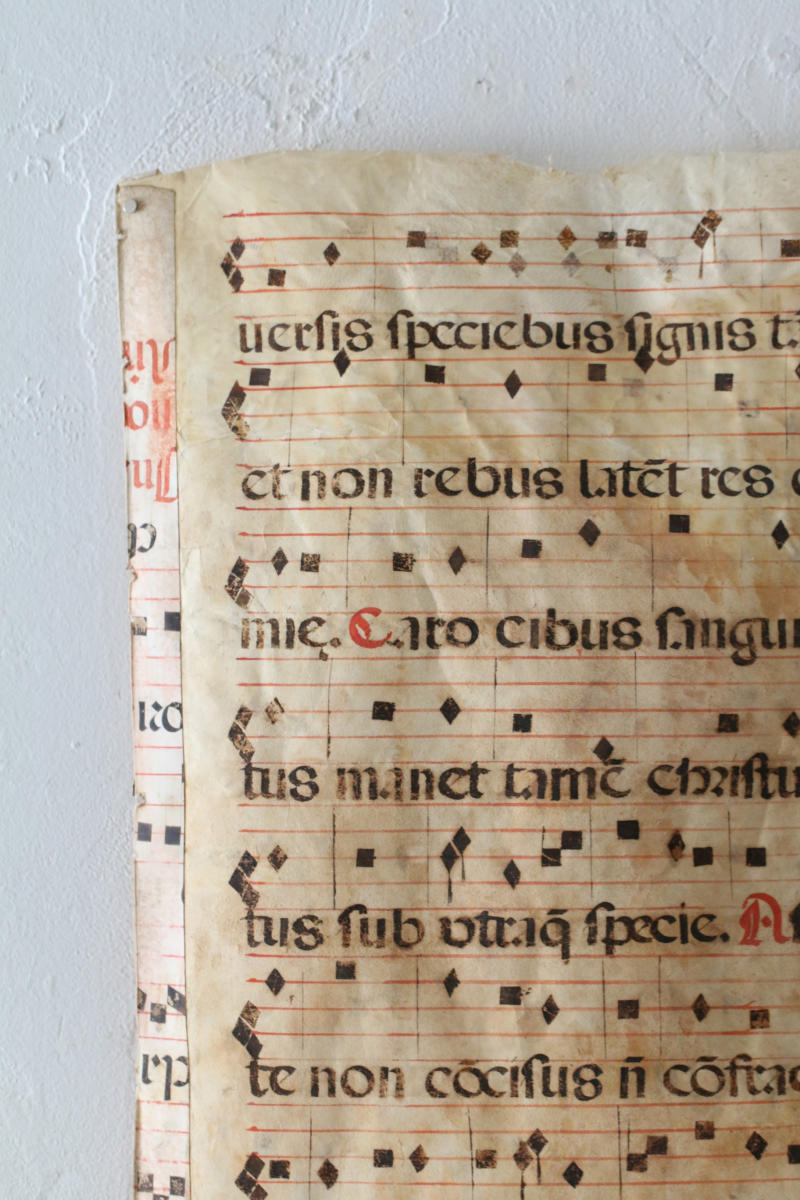 uersis speciebus signis
et non rebus latēt res
mię. Caro cibus sangui
tus manet tamē christu
tus sub vtraq̄ specie.
te non cōcisus n̄ cōfrac